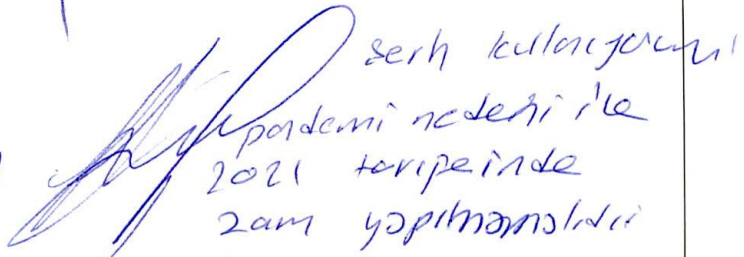 şerh kullanıyorum
pandemi nedeni ile
2021 tarifesinde
zam yapılmamalıdır